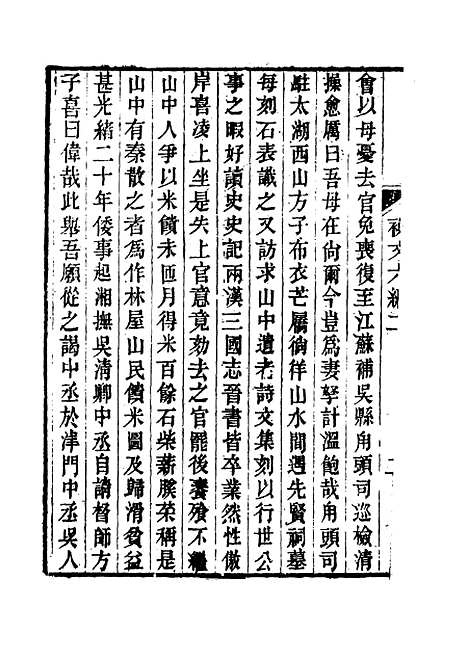 會以母憂去官免喪復至江蘇補吳縣甪頭司巡檢清
操愈厲曰吾母在尙爾今豈爲妻孥計溫飽哉甪頭司
駐太湖西山方子布衣芒屩徜徉山水間遇先賢祠墓
每刻石表識之又訪求山中遺老詩文集刻以行世公
事之暇好讀史史記兩漢三國志晉書皆卒業然性傲
岸喜凌上坐是失上官意竟劾去之官罷後饔飧不繼
山中人爭以米饋未匝月得米百餘石柴薪膎菜稱是
山中有秦散之者爲作林屋山民饋米圖及歸滑貧益
甚光緖二十年倭事起湘撫吳清卿中丞自請督師方
子喜曰偉哉此舉吾願從之謁中丞於津門中丞吳人